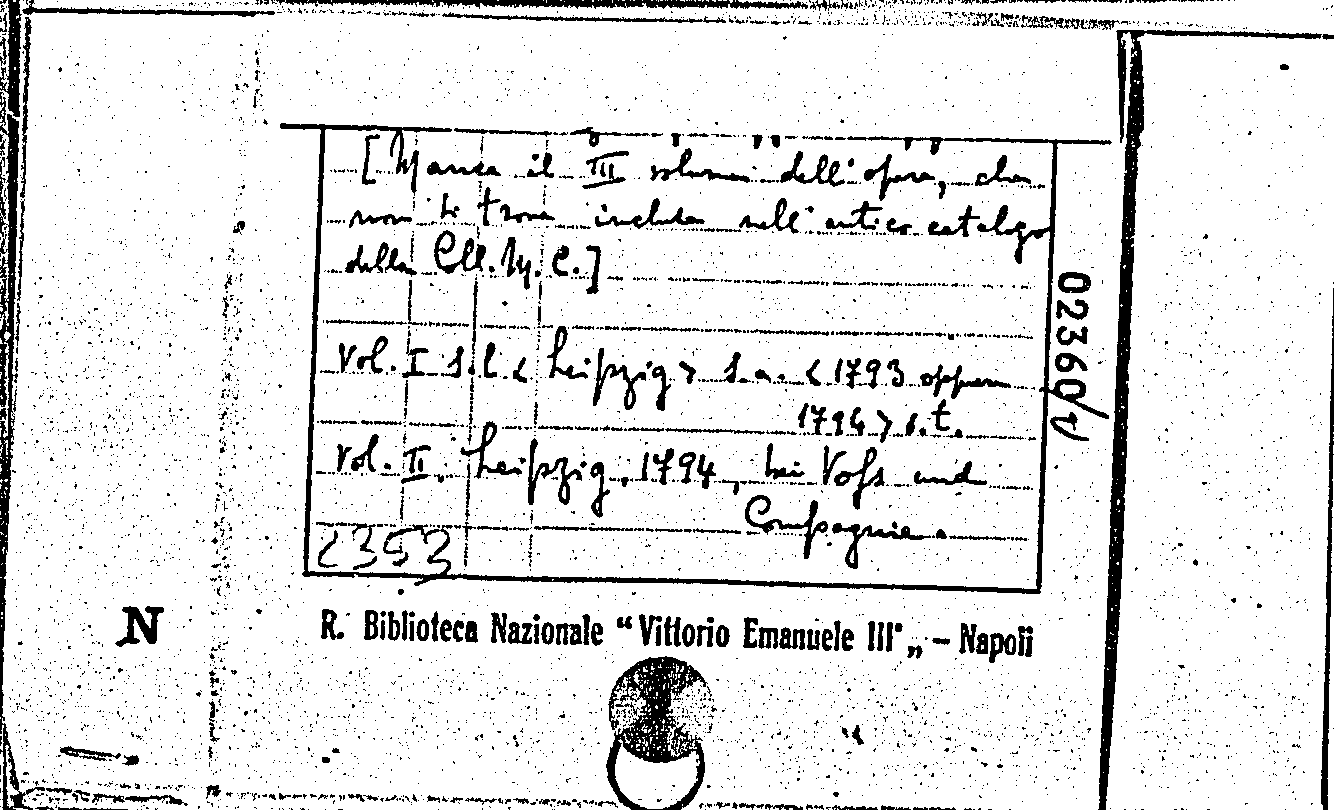 [Manca il III volume dell'opera, che
non si trova incluso nell'antico catalogo
della Coll. M. C.]
Vol. I s.l. < Leipzig > s.a. < 1793 oppure
1794 > s.t.
Vol. II. Leipzig, 1794, bei Voss und
Compagnie.
2353
02360/1
N
R. Biblioteca Nazionale “Vittorio Emanuele III„ – Napoli